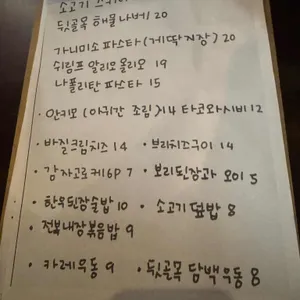 소고기
뒷골목 해물나베 20
가니미소 파스타 (게딱지장) 20
쉬림프 알리오올리오 19
나폴리탄 파스타 15
· 안키모 (아귀간 조림) 14 타코와사비 12
· 바질크림치즈 14 · 브리치즈구이 14
· 감자고로케 6P 7 · 보리된장과 오이 5
· 한우된장술밥 10 · 소고기 덮밥 8
· 전복내장볶음밥 9
· 카레우동 9 · 뒷골목 담백우동 8